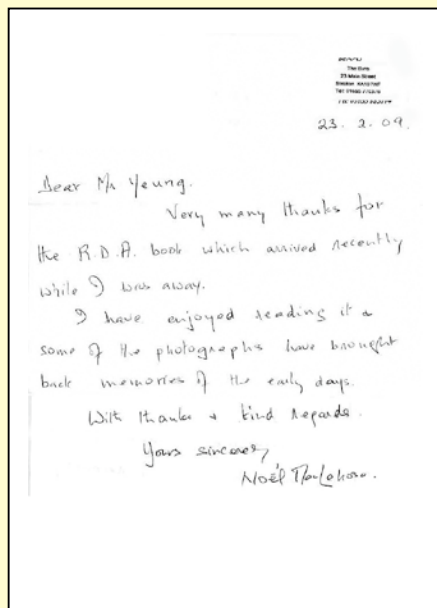 The Byre
23 Main Street
23. 2. 09.
Dear Mr Yeung.
Very many thanks for
the R.D.A. book which arrived recently
while I was away.
I have enjoyed reading it &
some of the photographs have brought
back memories of the early days.
With thanks & kind regards.
Yours sincerely
Noël